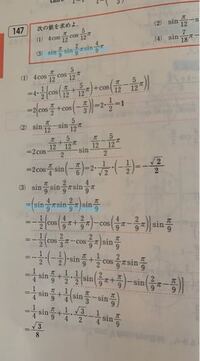 147
次の値を求めよ。
(1) 4cos π/12 cos 5/12 π
(2) sin π/12 −
(3) sin π/9 sin 2/9 π sin 4/9 π
(4) sin 7/18 π −
(1) 4cos π/12 cos 5/12 π
=4·1/2{cos(π/12+5/12 π)+cos(π/12−5/12 π)}
=2{cos π/2+cos(−π/3)}=2·1/2=1
(2) sin π/12−sin 5/12 π
=2cos
sin
=2cos π/4 sin(−π/6)=2·
·(−1/2)=−√2/2
(3) sin π/9 sin 2/9 π sin 4/9 π
=(sin 4/9 π sin 2/9 π)sin π/9
=−1/2{cos(4/9 π+2/9 π)−cos(4/9 π−2/9 π)}sin π/9
=−1/2(cos 2/3 π−cos 2/9 π)sin π/9
=−1/2·(−1/2)sin π/9+1/2 cos 2/9 π sin π/9
=1/4 sin π/9+1/2·1/2{sin(2/9 π+π/9)−sin(2/9 π−π/9)}
=1/4 sin π/9+1/4(sin π/3−sin π/9)
=1/4 sin π/9+1/4·√3/2−1/4 sin π/9
=√3/8